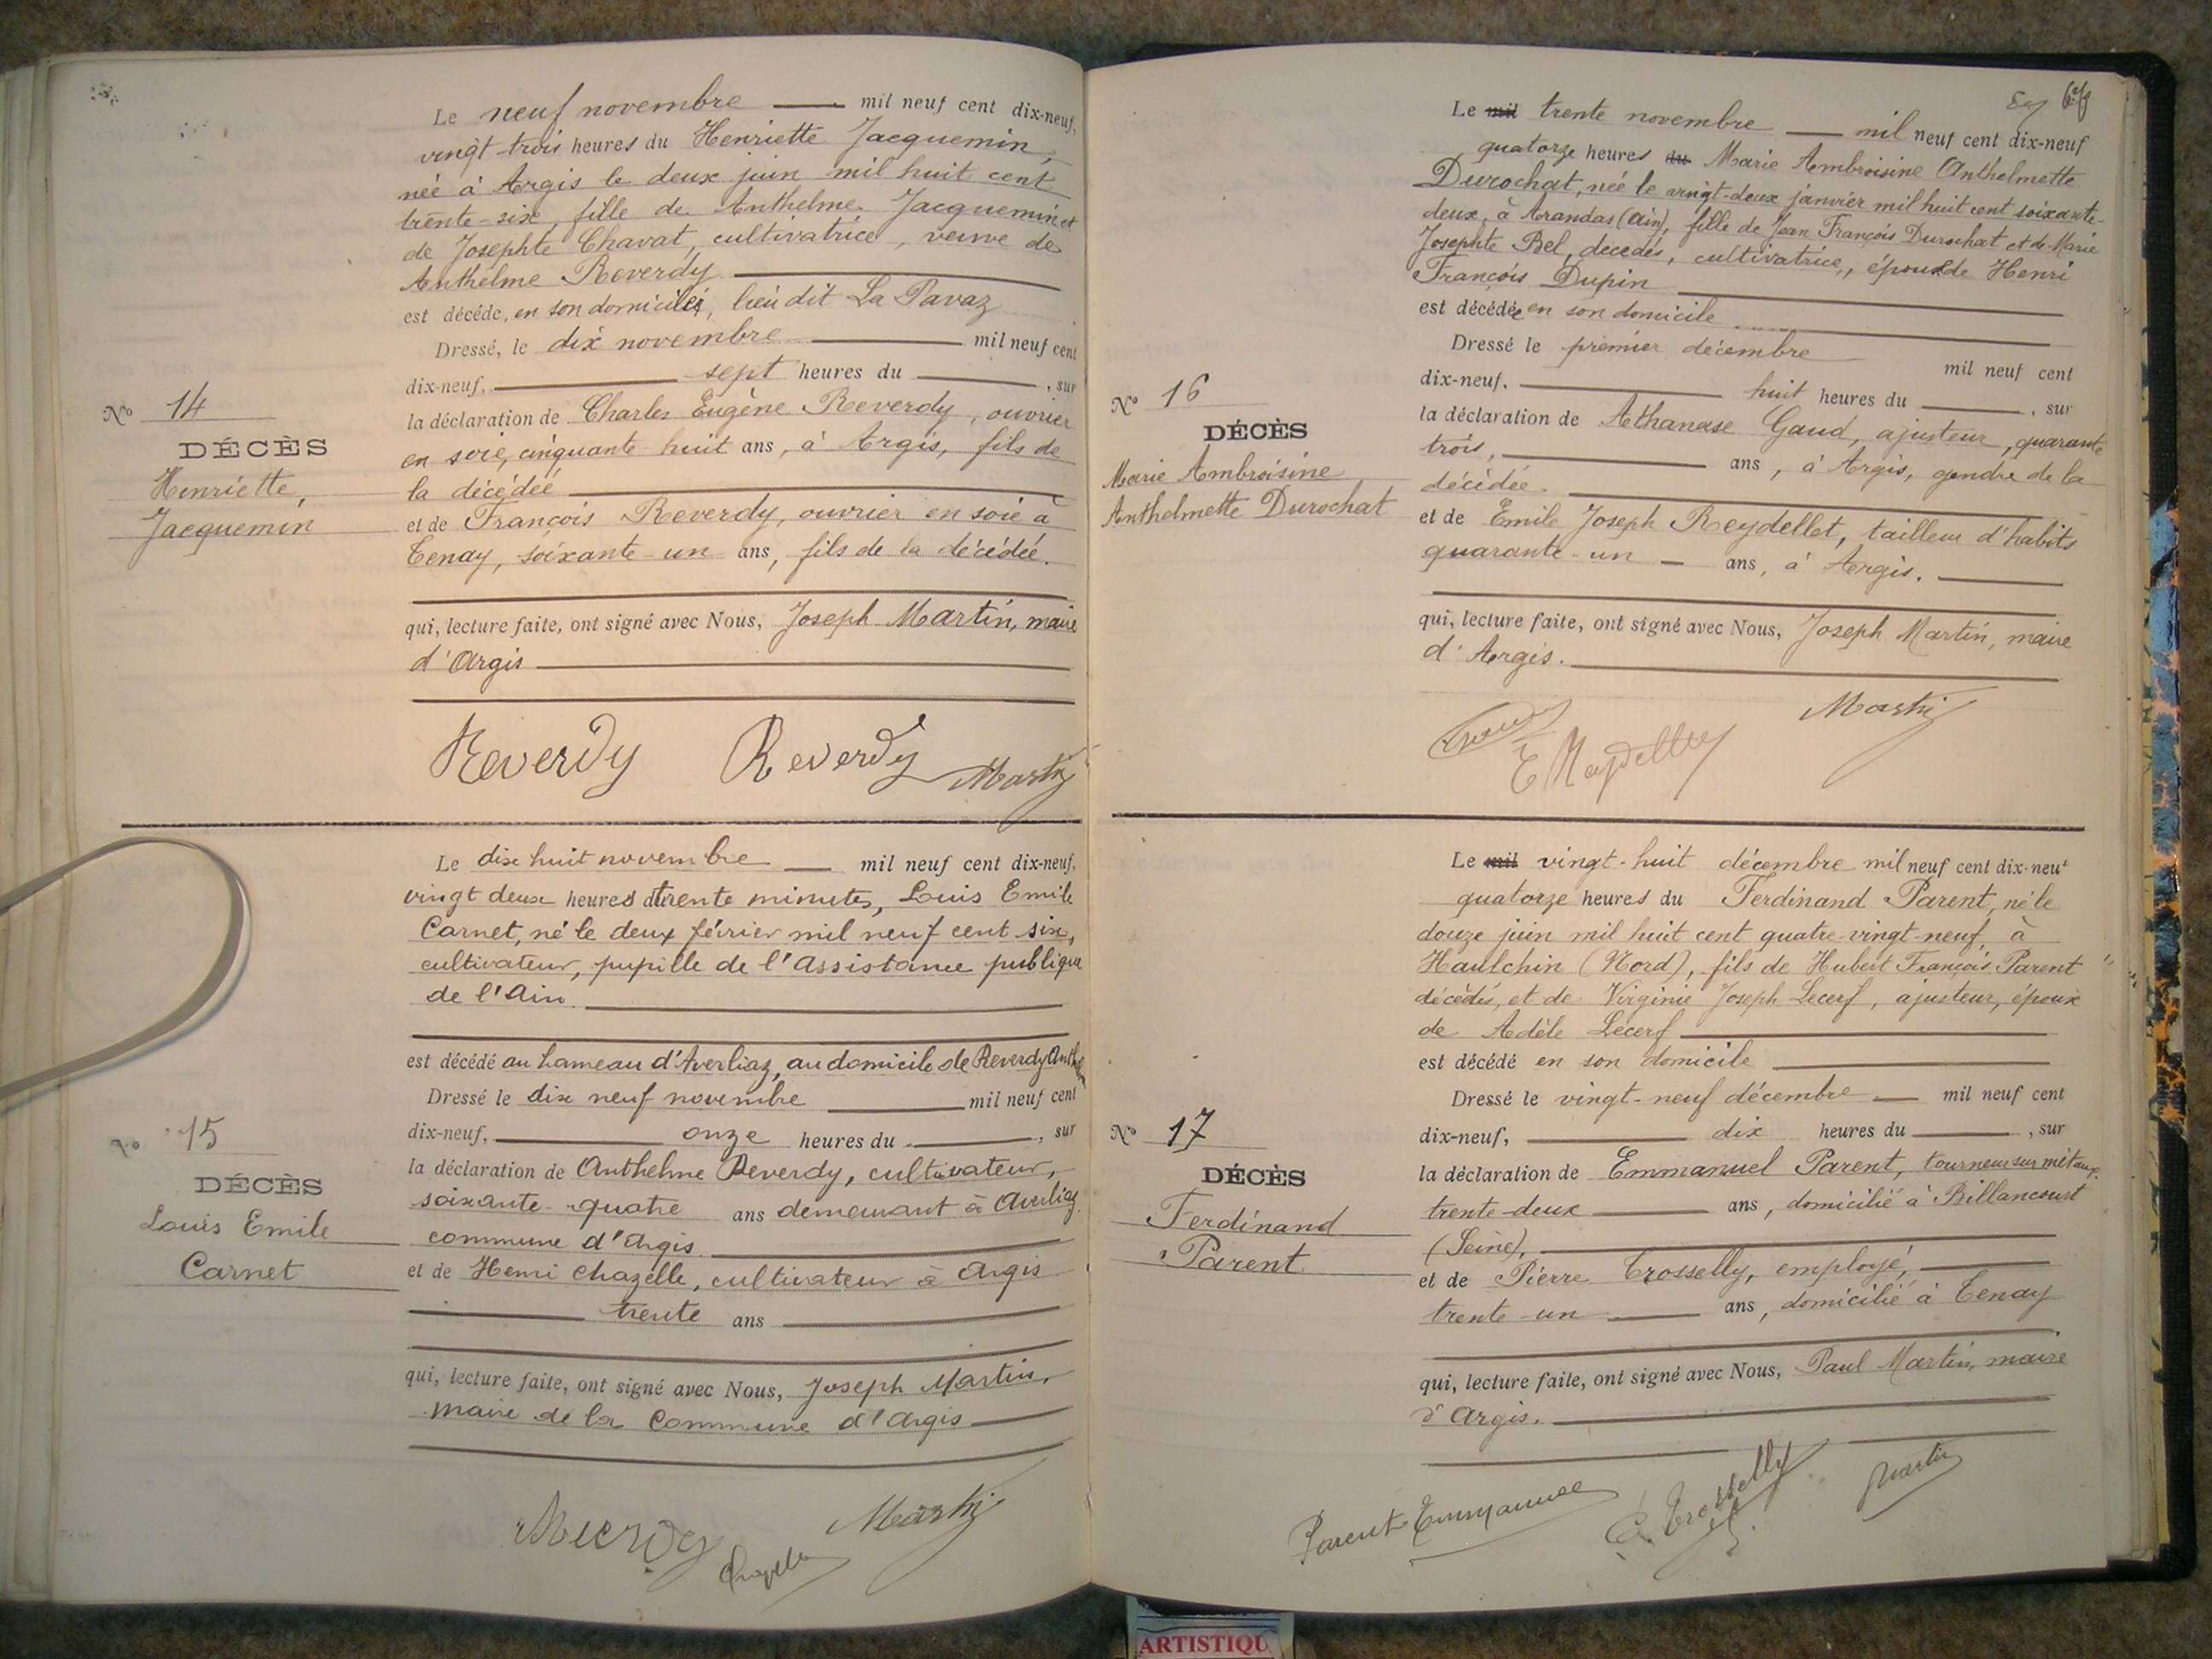 Le neuf novembre mil neuf cent dix-neuf,
vingt-trois heures du Henriette Jacquemin,
née à Argis le deux juin mil huit cent
trente-six, fille de Anthelme Jacquemin et
de Josephte Chavat, cultivatrice, veuve de
Anthelme Reverdy
est décédé, en son domicile, lieu dit La Pavaz
Dressé, le dix novembre mil neuf cent
dix-neuf, sept heures du , sur
la déclaration de Charles Eugène Reverdy, ouvrier
en soie, cinquante-huit ans, à Argis, fils de
la décédée
et de François Reverdy, ouvrier en soie à
Tenay, soixante-un ans, fils de la décédée.
qui, lecture faite, ont signé avec Nous, Joseph Martin, maire
d'Argis
Reverdy Reverdy Martin
No 14
DÉCÈS
Henriette,
Jacquemin
Le dix huit novembre mil neuf cent dix-neuf,
vingt deux heures trente minutes, Louis Emile
Carnet, né le deux février mil neuf cent six,
cultivateur, pupille de l'Assistance publique
de l'Ain.
est décédé au hameau d'Averliaz, au domicile de Reverdy Anthelme
Dressé le dix neuf novembre mil neuf cent
dix-neuf, onze heures du , sur
la déclaration de Anthelme Reverdy, cultivateur,
soixante-quatre ans demeurant à Averliaz
commune d'Argis
et de Henri Chazelle, cultivateur à Argis
trente ans
qui, lecture faite, ont signé avec Nous, Joseph Martin,
maire de la Commune d'Argis
Reverdy Chazelle Martin
No 15
DÉCÈS
Louis Emile
Carnet
Le mil trente novembre mil neuf cent dix-neuf
quatorze heures du Marie Ambroisine Anthelmette
Durochat, née le vingt-deux janvier mil huit cent soixante-
deux, à Arandas (Ain), fille de Jean François Durochat et de Marie
Josephte Bel, décédés, cultivatrice, épouse de Henri
François Dupin
est décédée en son domicile
Dressé le premier décembre mil neuf cent
dix-neuf, huit heures du , sur
la déclaration de Athanase Gaud, ajusteur, quarante
trois, ans, à Argis, gendre de la
décédée
et de Emile Joseph Reydellet, tailleur d'habits
quarante-un ans, à Argis.
qui, lecture faite, ont signé avec Nous, Joseph Martin, maire
d'Argis.
E Reydellet Martin
No 16
DÉCÈS
Marie Ambroisine
Anthelmette Durochat
Le mil vingt-huit décembre mil neuf cent dix-neuf
quatorze heures du Ferdinand Parent, né le
douze juin mil huit cent quatre-vingt-neuf, à
Haulchin (Nord), fils de Hubert François Parent
décédés, et de Virginie Joseph Lecerf, ajusteur, époux
de Adèle Lecerf
est décédé en son domicile
Dressé le vingt-neuf décembre mil neuf cent
dix-neuf, dix heures du , sur
la déclaration de Emmanuel Parent, tourneur sur métaux,
trente-deux ans, domicilié à Billancourt
(Seine),
et de Pierre Trosselly, employé,
trente-un ans, domicilié à Tenay
qui, lecture faite, ont signé avec Nous, Paul Martin, maire
d'Argis.
Parent Emmanuel Trosselly Martin
No 17
DÉCÈS
Ferdinand
Parent
ARTISTIQU